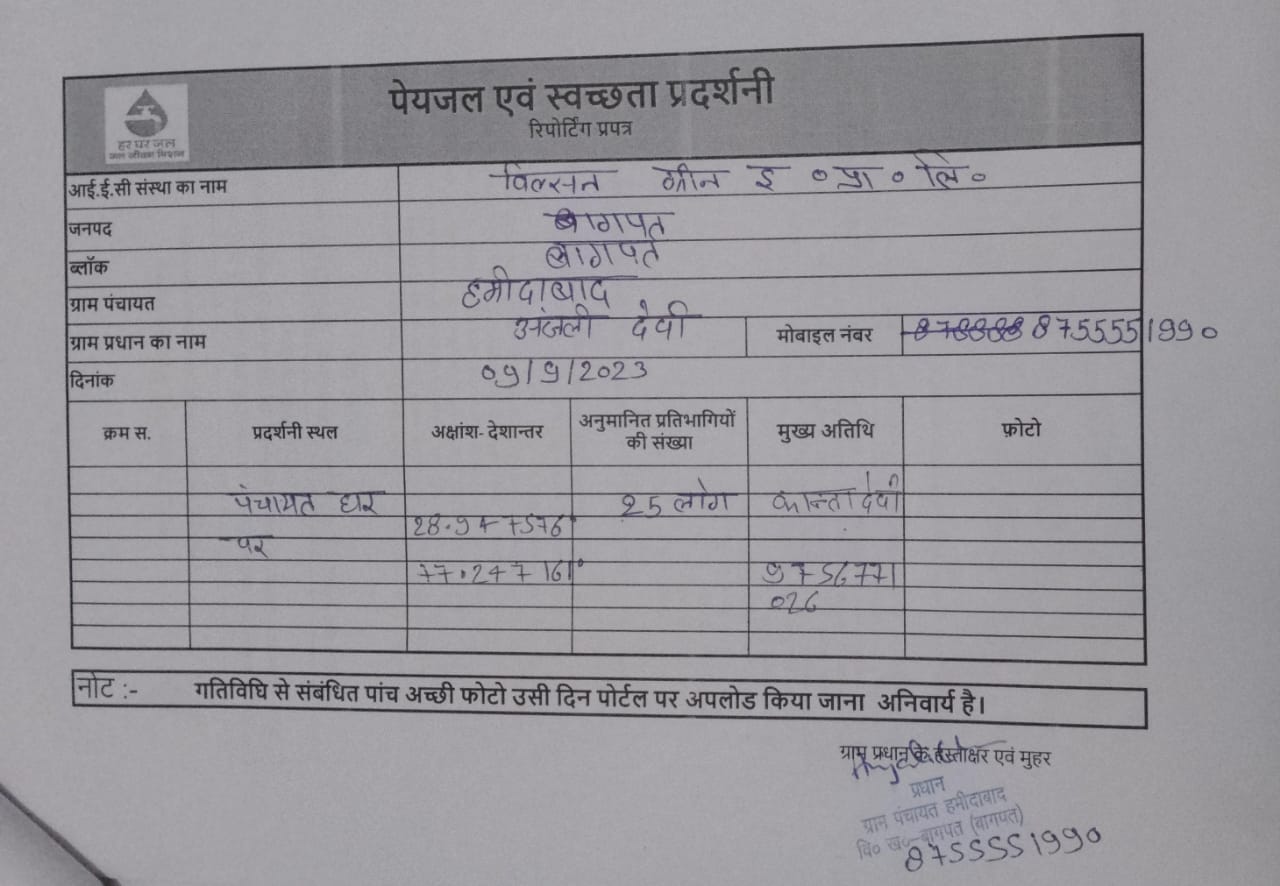 पेयजल एवं स्वच्छता प्रदर्शनी
रिपोर्टिंग प्रपत्र
हर घर जल
जल जीवन मिशन
आई.ई.सी संस्था का नाम विल्सन ग्रीन इ ० प्रा ० लि ०
जनपद बागपत
ब्लॉक बागपत
ग्राम पंचायत हमीदाबाद
ग्राम प्रधान का नाम अंजली देवी मोबाइल नंबर 8755551990
दिनांक 09/9/2023
क्रम स. प्रदर्शनी स्थल अक्षांश- देशान्तर अनुमानित प्रतिभागियों की संख्या मुख्य अतिथि फ़ोटो
पंचायत घर 25 लोग कान्ता देवी
28.947576°
पर
77.247161° 9756771
026
नोट :- गतिविधि से संबंधित पांच अच्छी फोटो उसी दिन पोर्टल पर अपलोड किया जाना अनिवार्य है।
ग्राम प्रधान के हस्ताक्षर एवं मुहर
प्रधान
ग्राम पंचायत हमीदाबाद
वि० ख०-बागपत (बागपत)
8755551990